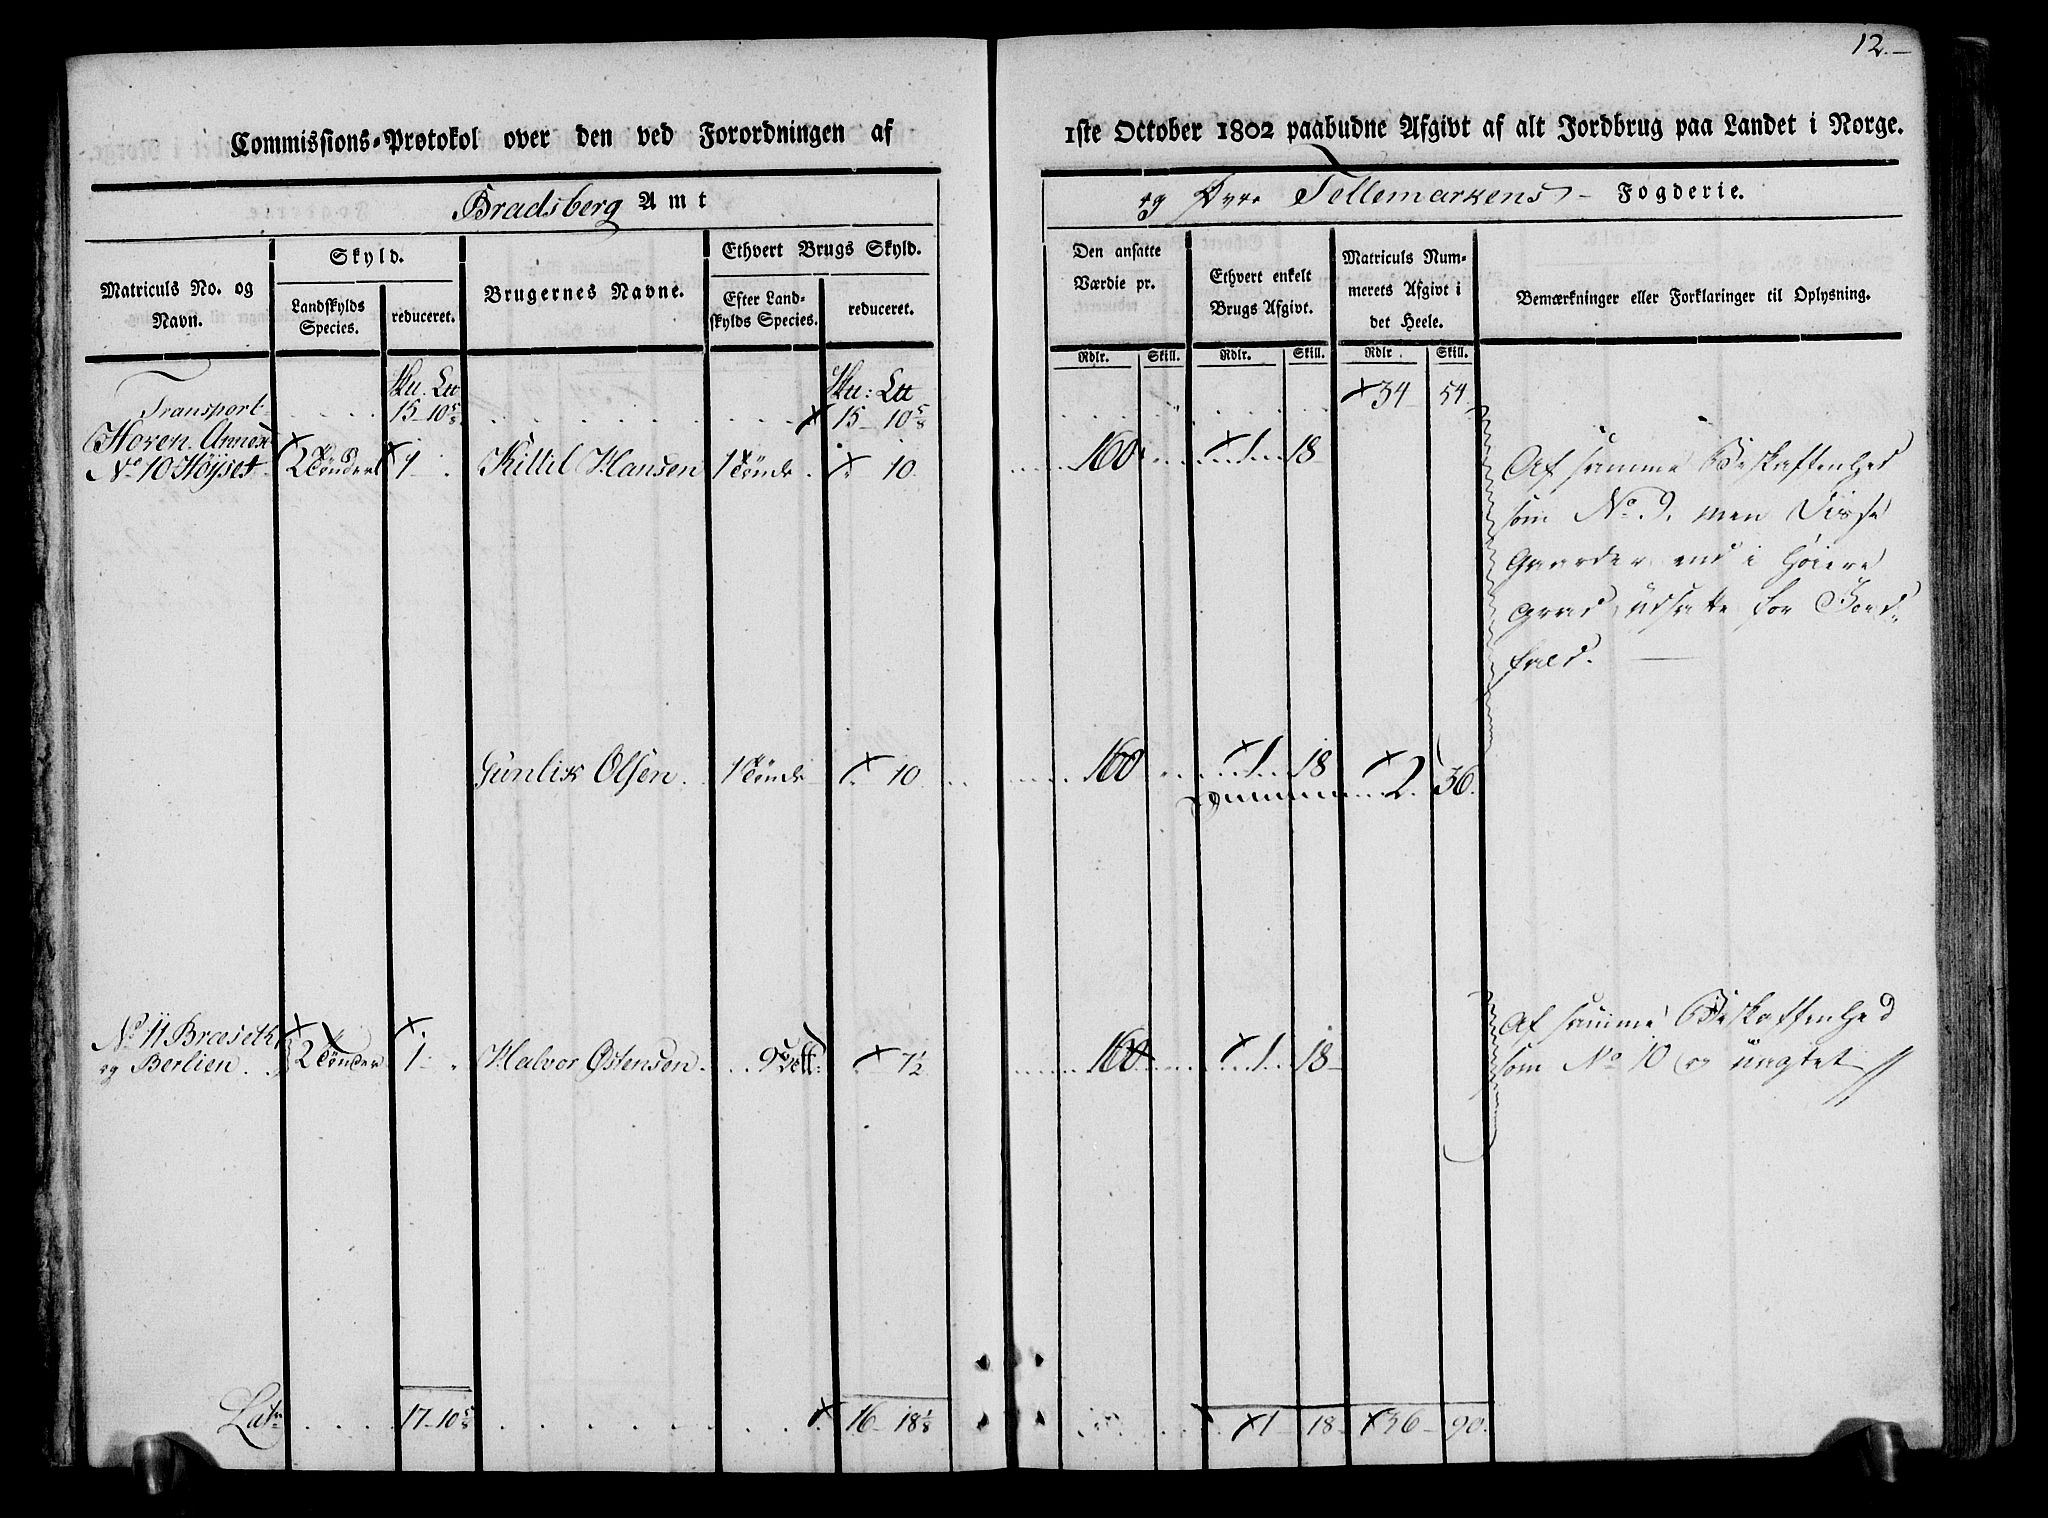 12.
Commissions-Protokol over den ved Forordningen af 1ste October 1802 paabudne Afgivt af alt Jordbrug paa Landet i Norge.
Bradsberg Amt og Øvre Tellemarkens Fogderie.
Matriculs No. og Navn.
Skyld.
Landskylds Species.
reduceret.
Brugernes Navne.
Ethvert Brugs Skyld.
Efter Landskylds Species.
reduceret.
Den ansatte Værdie pr.
Ethvert enkelt Brugs Afgivt.
Matriculs Nummerets Afgivt i det Heele.
Bemærkninger eller Forklaringer til Oplysning.
Rdlr. Skill. Rdlr. Skill. Rdlr. Skill.
Transport 15 10 5/8 15 10 5/8 34 54
Annex
No 10 Høyset 2 Tønder 1 Kittil Hansen 1 Tønde 10 160 1 18
Af samme Beskaffenhed
som No 9, men disse
Gaarder end i høiere
Grad udsatte for Jord-
fald.
Gunlik Olsen 1 Tønde 10 160 1 18 2 36
No 11 Bræseth
og Berlien 2 Tønder 1 Halvor Østensen 9 Sett: 7 1/2 160 1 18
Af samme Beskaffenhed
som No 10 og
Lat 17 10 5/8 16 18 1/8 1 18 36 90